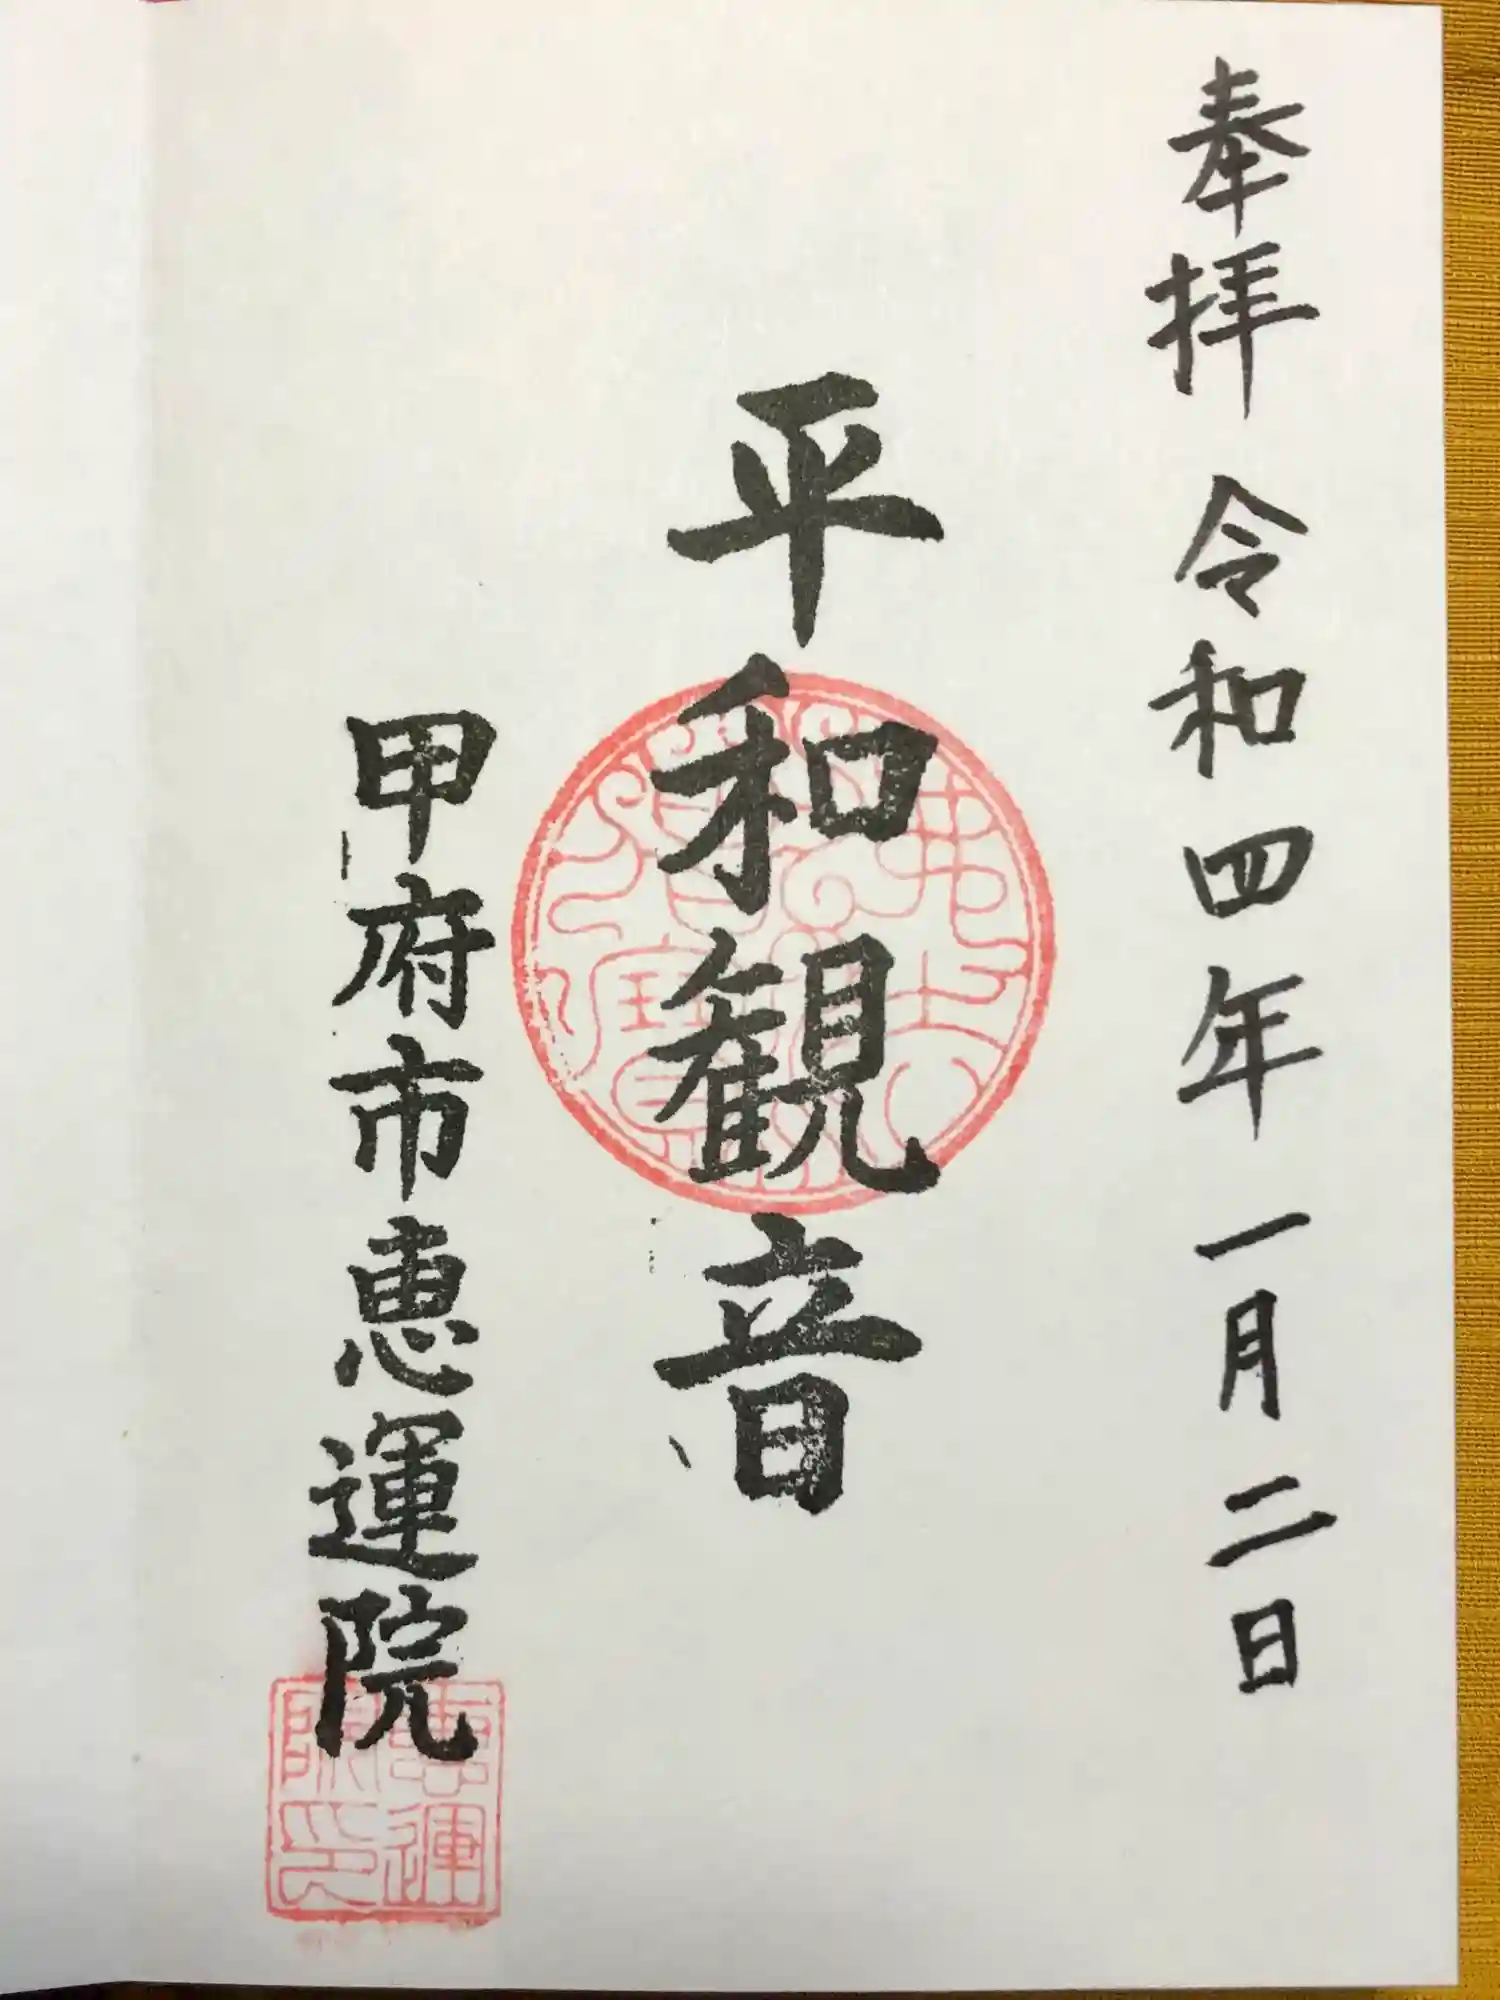 奉拝 令和四年 一月二日
平和観音
甲府市恵運院
恵運院印